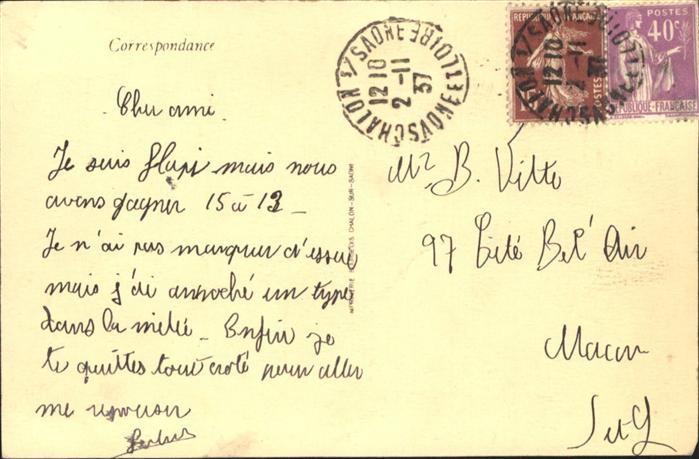 Correspondance
Cher ami
Je suis flapi mais nous
avons gagner 15 à 13 -
Je n'ai pas marquer d'essai
mais j'ai amoché un type
dans la mêlée - Enfin je
te quittes tout croté pour aller
me reposer
Mr B. Vitte
97 Cité Bel' Air
Macon
S et L
CHALON S/ SAONE
12 10
2 -11
37
SAONE ET LOIRE
RÉPUBLIQUE FRANÇAISE
POSTES
POSTES
40c
RÉPUBLIQUE-FRANÇAISE
CHALON-SUR-SAONE